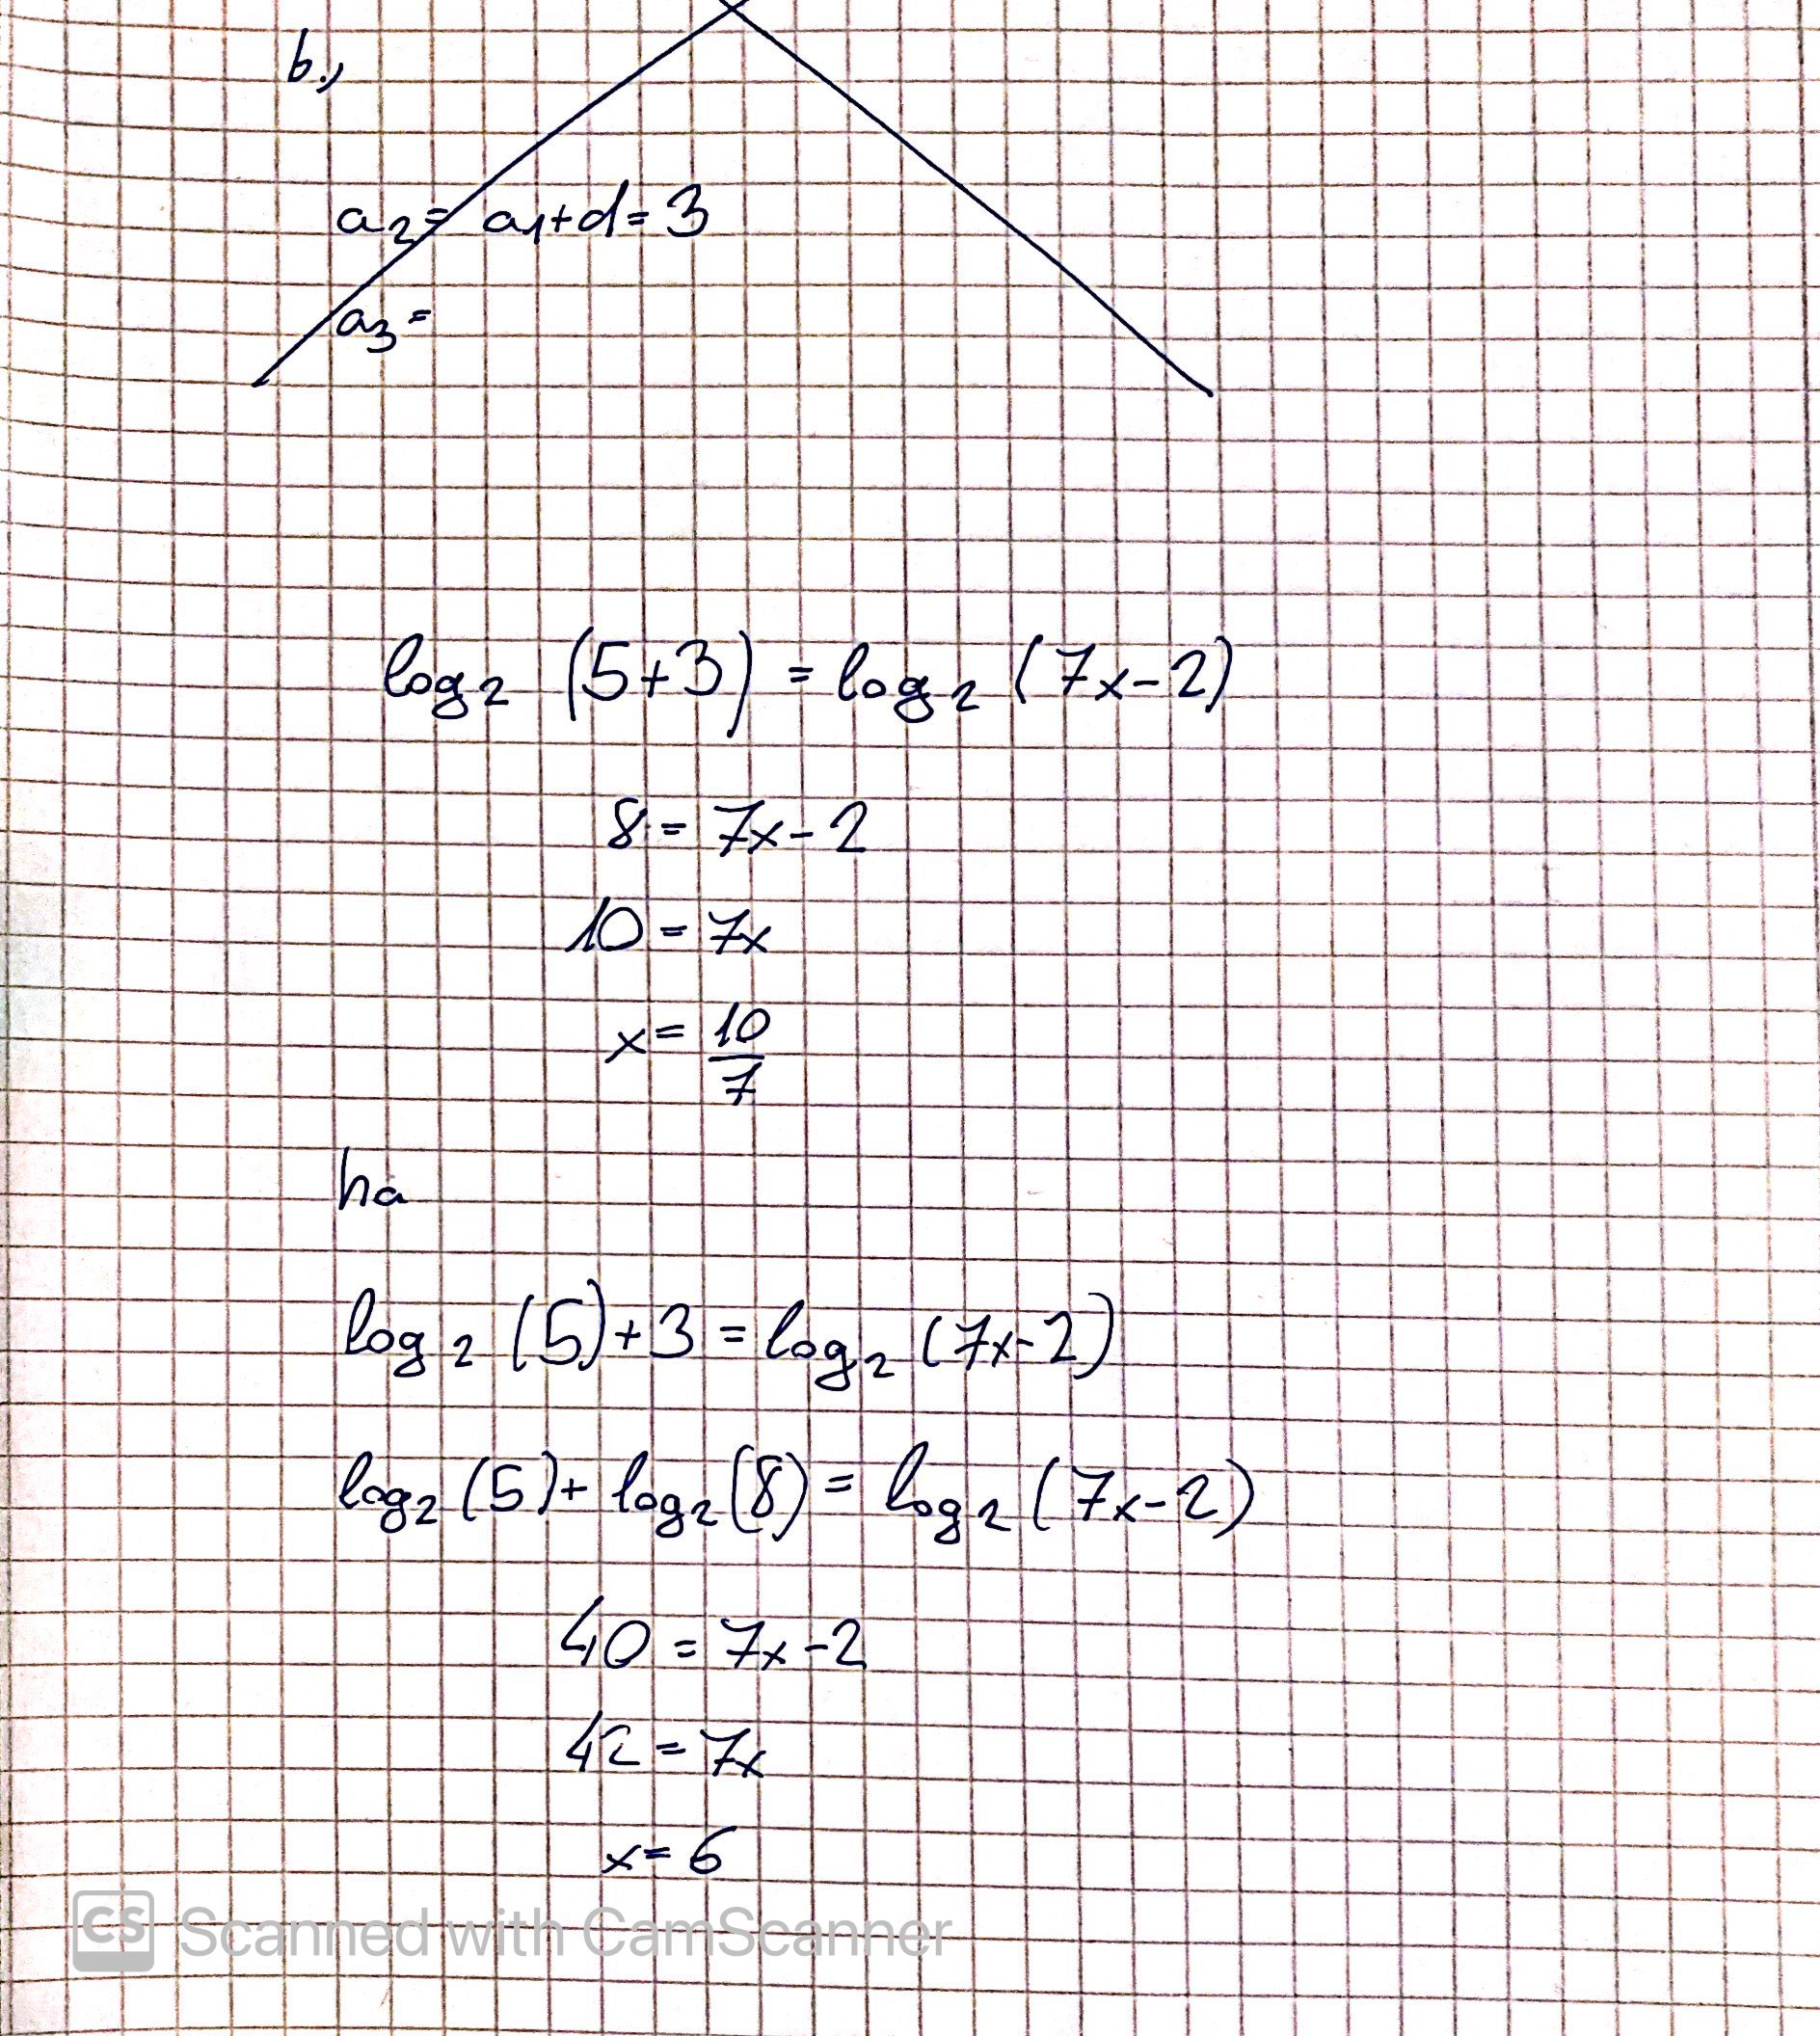 b.,
a₂= a₁+d=3
a₃=
log₂ (5+3) = log₂ (7x-2)
8 = 7x-2
10 = 7x
x = 10/7
ha
log₂ (5)+3 = log₂ (7x-2)
log₂ (5)+ log₂ (8) = log₂ (7x-2)
40 = 7x-2
42 = 7x
x = 6
CS Scanned with CamScanner